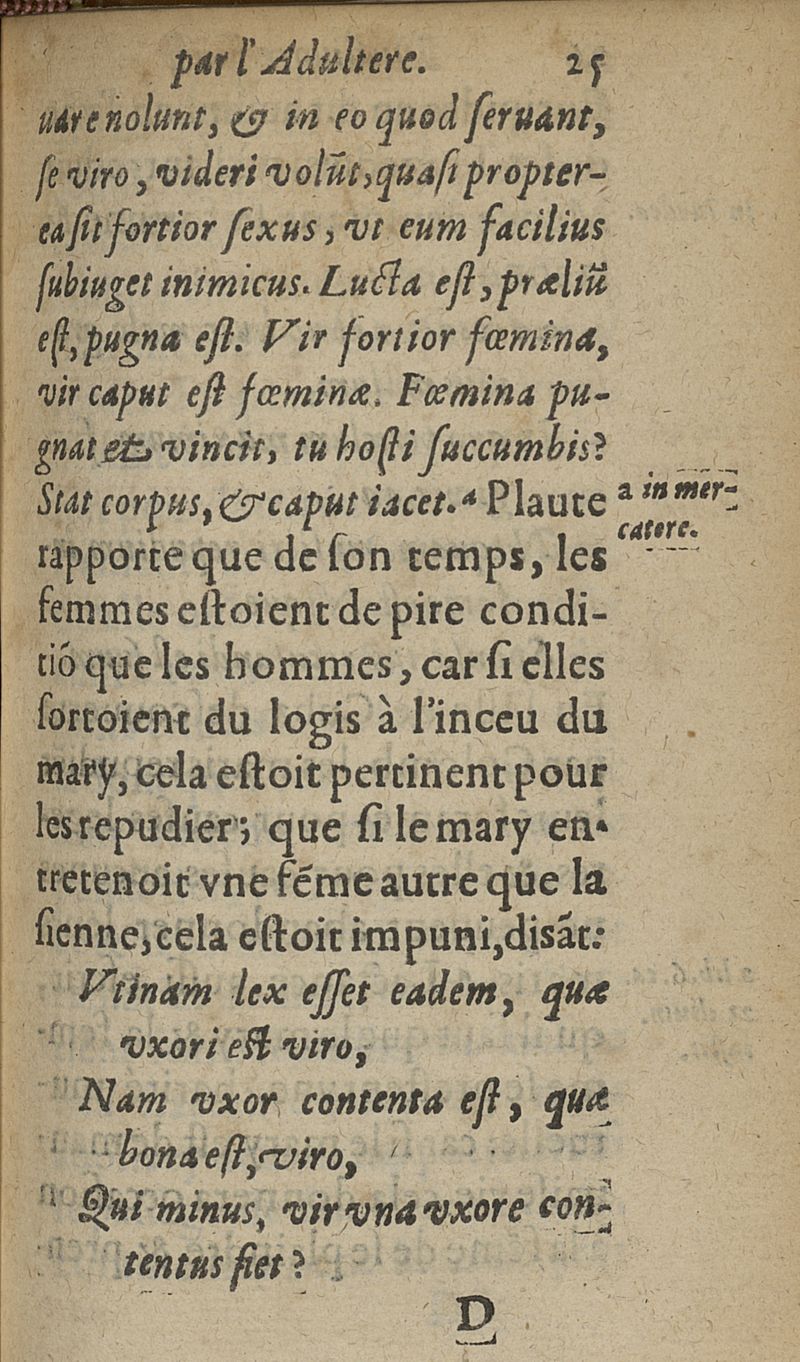 par l'Adultere. 25
uare nolunt, & in eo quod ſeruant,
ſe viro, videri volūt, quaſi propter-
ea ſit fortior ſexus, vt eum facilius
ſubiuget inimicus. Lucta eſt, præliū
eſt, pugna eſt. Vir fortior fœmina,
vir caput eſt fœminæ. Fœmina pu-
gnat et vincit, tu hoſti ſuccumbis?
Stat corpus, & caput iacet. ᵃ Plaute
a in mer-
catere.
rapporte que de ſon temps, les
femmes eſtoient de pire condi-
tiõ que les hommes, car ſi elles
ſortoient du logis à l'inceu du
mary, cela eſtoit pertinent pour
les repudier; que ſi le mary en-
tretenoit vne fẽme autre que la
ſienne, cela eſtoit impuni, diſãt:
Vtinam lex eſſet eadem, quæ
vxori eſt viro,
Nam vxor contenta eſt, quæ
bona eſt, viro,
Qui minus, vir vna vxore con-
tentus fiet?
D